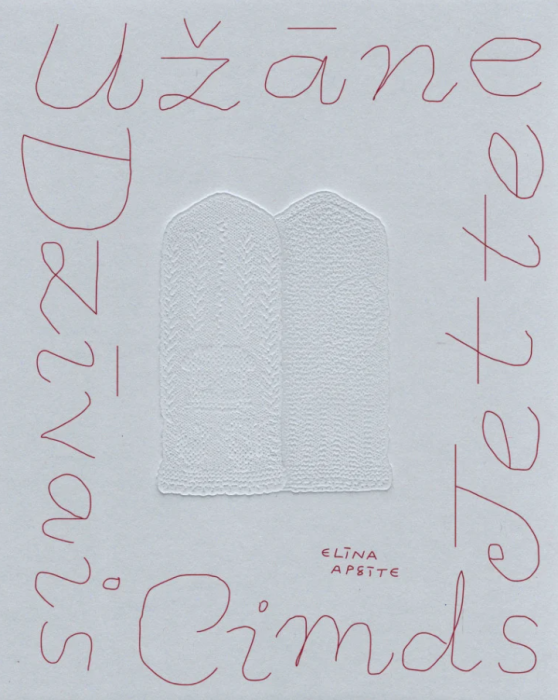 Jette
Užāne
Dzīvais
Cimds
ELĪNA
APSĪTE